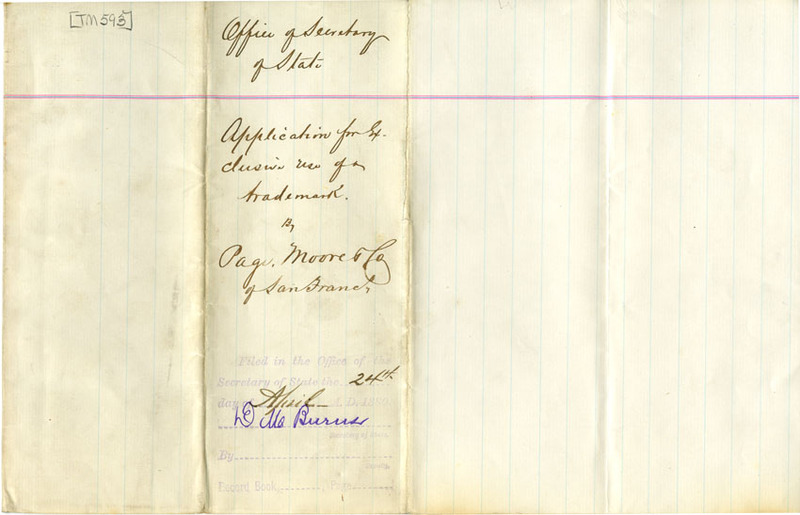 [TM 595]
Office of Secretary
of State
Application for Ex-
clusive use of a
trademark.
By
Page, Moore & Co
of San Franc.
Filed in the Office of the
Secretary of State the 24th
day of April A.D. 1880
D M Burns
Secretary of State.
By
Deputy.
Record Book, Page